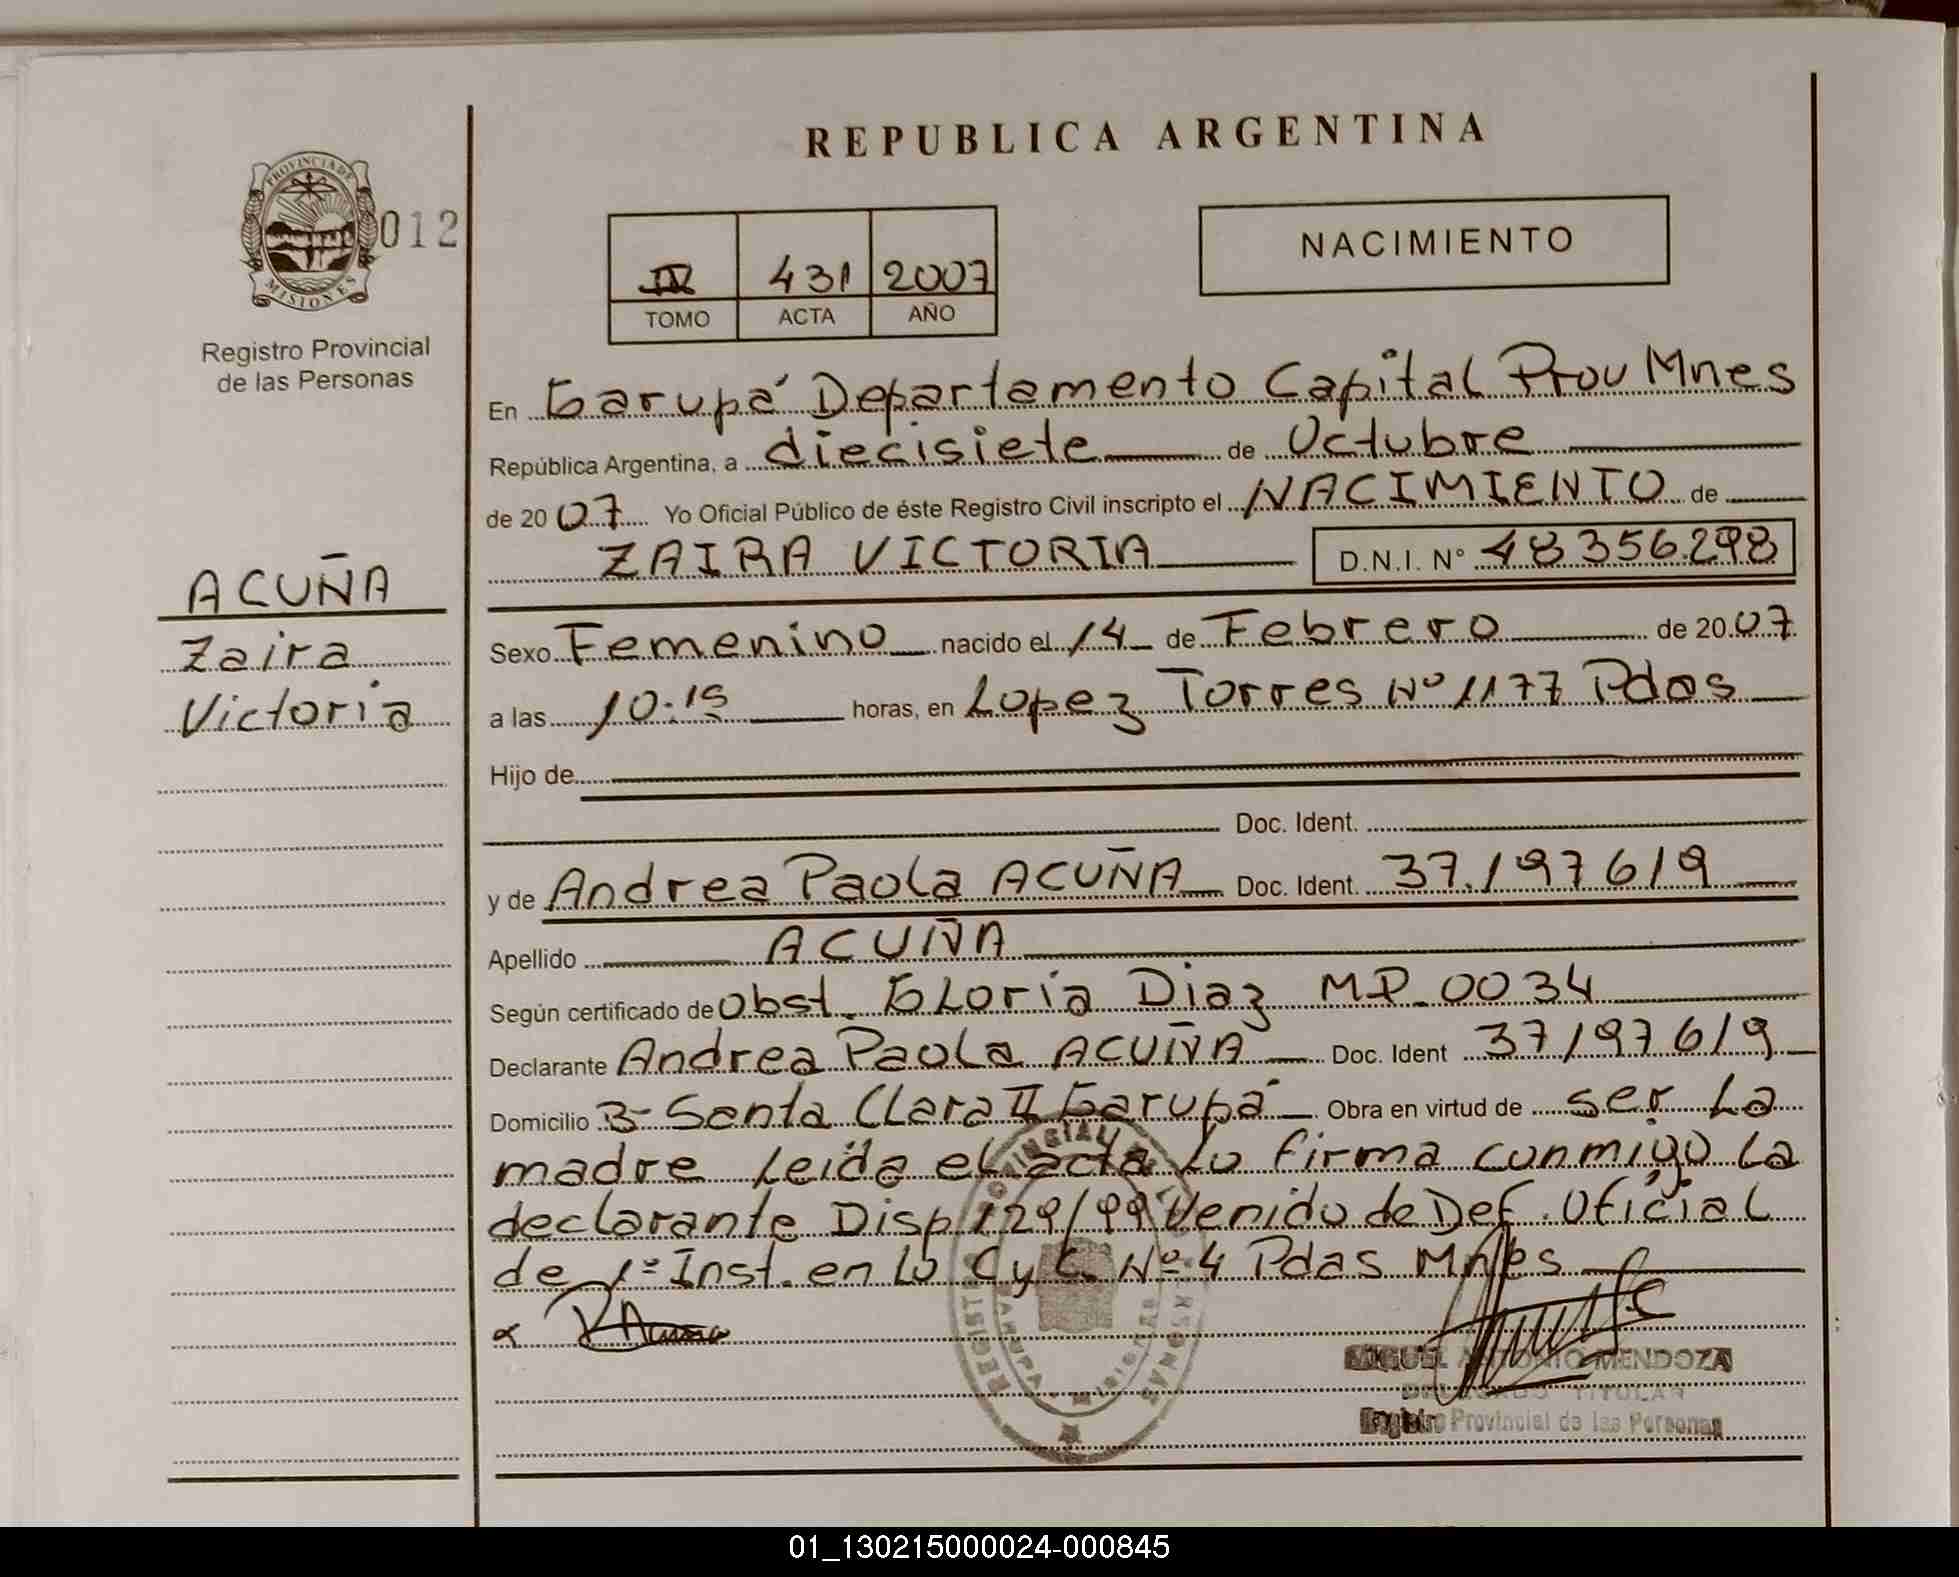 REPUBLICA ARGENTINA
PROVINCIA DE
MISIONES
012
Registro Provincial
de las Personas
IV 431 2007
TOMO ACTA AÑO
NACIMIENTO
En Garupá Departamento Capital Prov Mnes
República Argentina, a diecisiete de Octubre
de 2007 Yo Oficial Público de éste Registro Civil inscripto el NACIMIENTO de
ZAIRA VICTORIA D.N.I. Nº 48356.298
ACUÑA
Zaira
Victoria
Sexo Femenino nacido el 14 de Febrero de 2007
a las 10:15 horas, en Lopez Torres Nº 1177 Pdas
Hijo de
Doc. Ident.
y de Andrea Paola ACUÑA Doc. Ident. 37.197619
Apellido ACUÑA
Según certificado de Obst. Gloria Diaz MP. 0034
Declarante Andrea Paola ACUÑA Doc. Ident 37197619
Domicilio B- Santa Clara II Garupá Obra en virtud de ser la
madre leida el acta lo firma conmigo la
declarante Disp 129/99 Venido de Def. Oficial
de 1º Inst. en lo C y C. Nº 4 Pdas Mnes
MIGUEL ANTONIO MENDOZA
DELEGADO TITULAR
Registro Provincial de las Personas
01_130215000024-000845